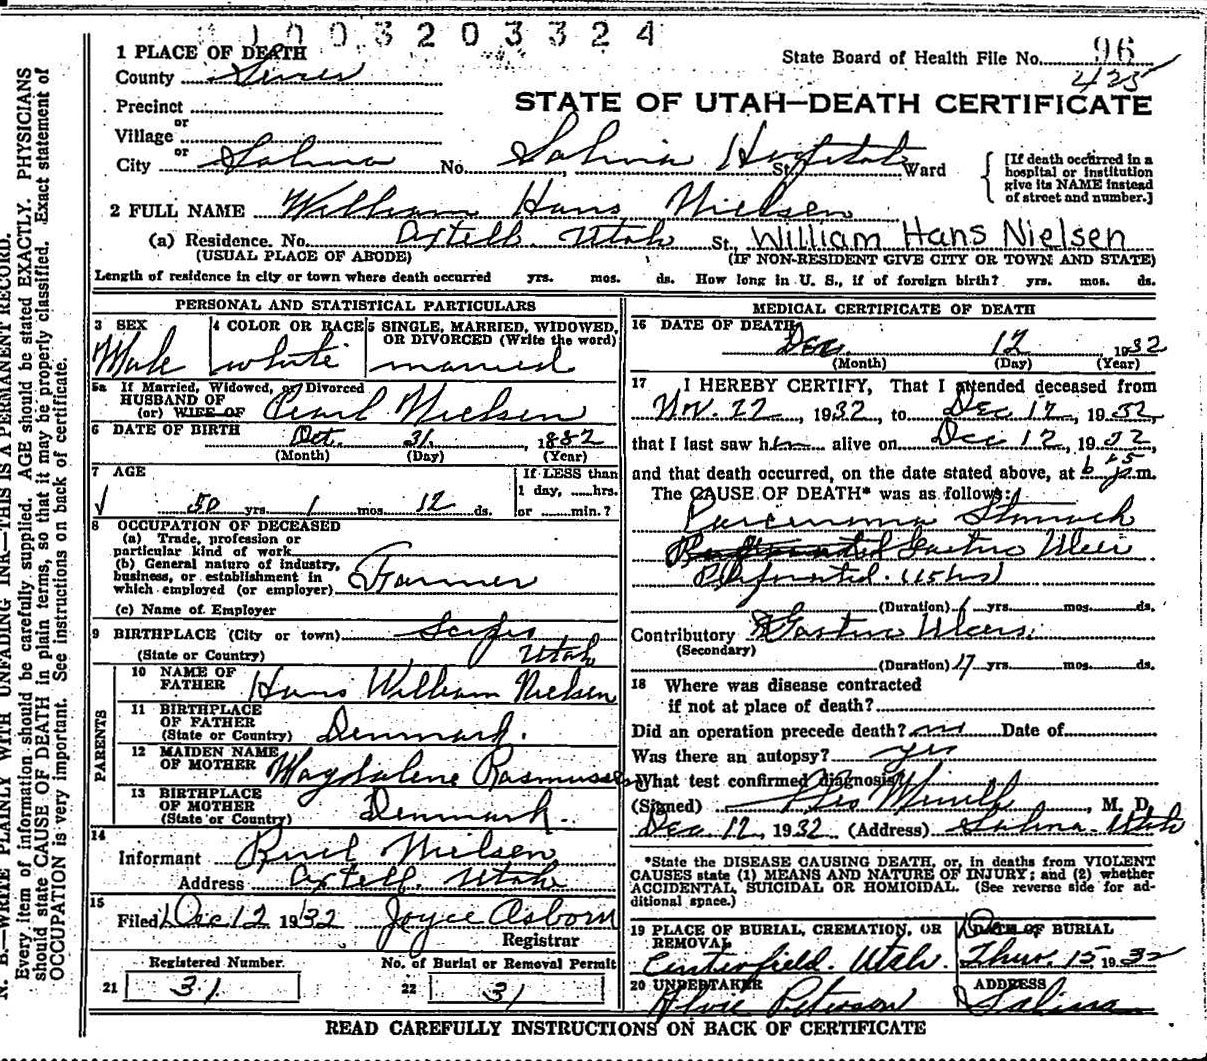 1003203324
1 PLACE OF DEATH
State Board of Health File No. 96
County Sevier
425
STATE OF UTAH—DEATH CERTIFICATE
Precinct
or
Village
or
City Salina No. Salina Hospital St. Ward
[If death occurred in a hospital or institution give its NAME instead of street and number.]
2 FULL NAME William Hans Nielsen
(a) Residence. No. Axtell. Utah St. William Hans Nielsen
(USUAL PLACE OF ABODE) (IF NON-RESIDENT GIVE CITY OR TOWN AND STATE)
Length of residence in city or town where death occurred yrs. mos. ds. How long in U. S., if of foreign birth? yrs. mos. ds.
PERSONAL AND STATISTICAL PARTICULARS
3 SEX 4 COLOR OR RACE 5 SINGLE, MARRIED, WIDOWED, OR DIVORCED (Write the word)
Male white married
5a If Married, Widowed, or Divorced
HUSBAND OF
(or) WIFE OF Pearl Nielsen
6 DATE OF BIRTH Oct. 31, 1882
(Month) (Day) (Year)
7 AGE If LESS than
1 day, hrs.
50 yrs. 1 mos. 12 ds. or min.?
8 OCCUPATION OF DECEASED
(a) Trade, profession or
particular kind of work
(b) General nature of industry,
business, or establishment in
which employed (or employer) Farmer
(c) Name of Employer
9 BIRTHPLACE (City or town) Scipio
(State or Country) Utah
PARENTS
10 NAME OF
FATHER Hans William Nielsen
11 BIRTHPLACE
OF FATHER
(State or Country) Denmark.
12 MAIDEN NAME
OF MOTHER Magdalene Rasmussen
13 BIRTHPLACE
OF MOTHER
(State or Country) Denmark.
14
Informant Nielsen
Address Axtell. Utah
15
Filed Dec 12 1932 Joyce Osborn
Registrar
Registered Number. No. of Burial or Removal Permit
21 31 22 31
MEDICAL CERTIFICATE OF DEATH
16 DATE OF DEATH
Dec. 12 1932
(Month) (Day) (Year)
17 I HEREBY CERTIFY, That I attended deceased from
Nov. 22, 1932 to Dec 12, 1932
that I last saw him alive on Dec 12, 1932,
and that death occurred, on the date stated above, at 6 15 p.m.
The CAUSE OF DEATH* was as follows:
Carcinoma Stomach
Gastric Ulcer
Perforated. (15 hrs)
(Duration) yrs. mos. ds.
Contributory Gastric Ulcers.
(Secondary)
(Duration) 17 yrs. mos. ds.
18 Where was disease contracted
if not at place of death?
Did an operation precede death? no Date of
Was there an autopsy? yes
What test confirmed diagnosis?
(Signed) , M. D.
Dec. 12, 1932 (Address) Salina. Utah
*State the DISEASE CAUSING DEATH, or, in deaths from VIOLENT
CAUSES state (1) MEANS AND NATURE OF INJURY; and (2) whether
ACCIDENTAL, SUICIDAL OR HOMICIDAL. (See reverse side for ad-
ditional space.)
19 PLACE OF BURIAL, CREMATION, OR REMOVAL DATE OF BURIAL
Centerfield. Utah. Thur. 15, 1932
20 UNDERTAKER ADDRESS
Peterson Salina
READ CAREFULLY INSTRUCTIONS ON BACK OF CERTIFICATE
N. B.—WRITE PLAINLY WITH UNFADING INK—THIS IS A PERMANENT RECORD.
Every item of information should be carefully supplied. AGE should be stated EXACTLY. PHYSICIANS
should state CAUSE OF DEATH in plain terms, so that it may be properly classified. Exact statement of
OCCUPATION is very important. See instructions on back of certificate.